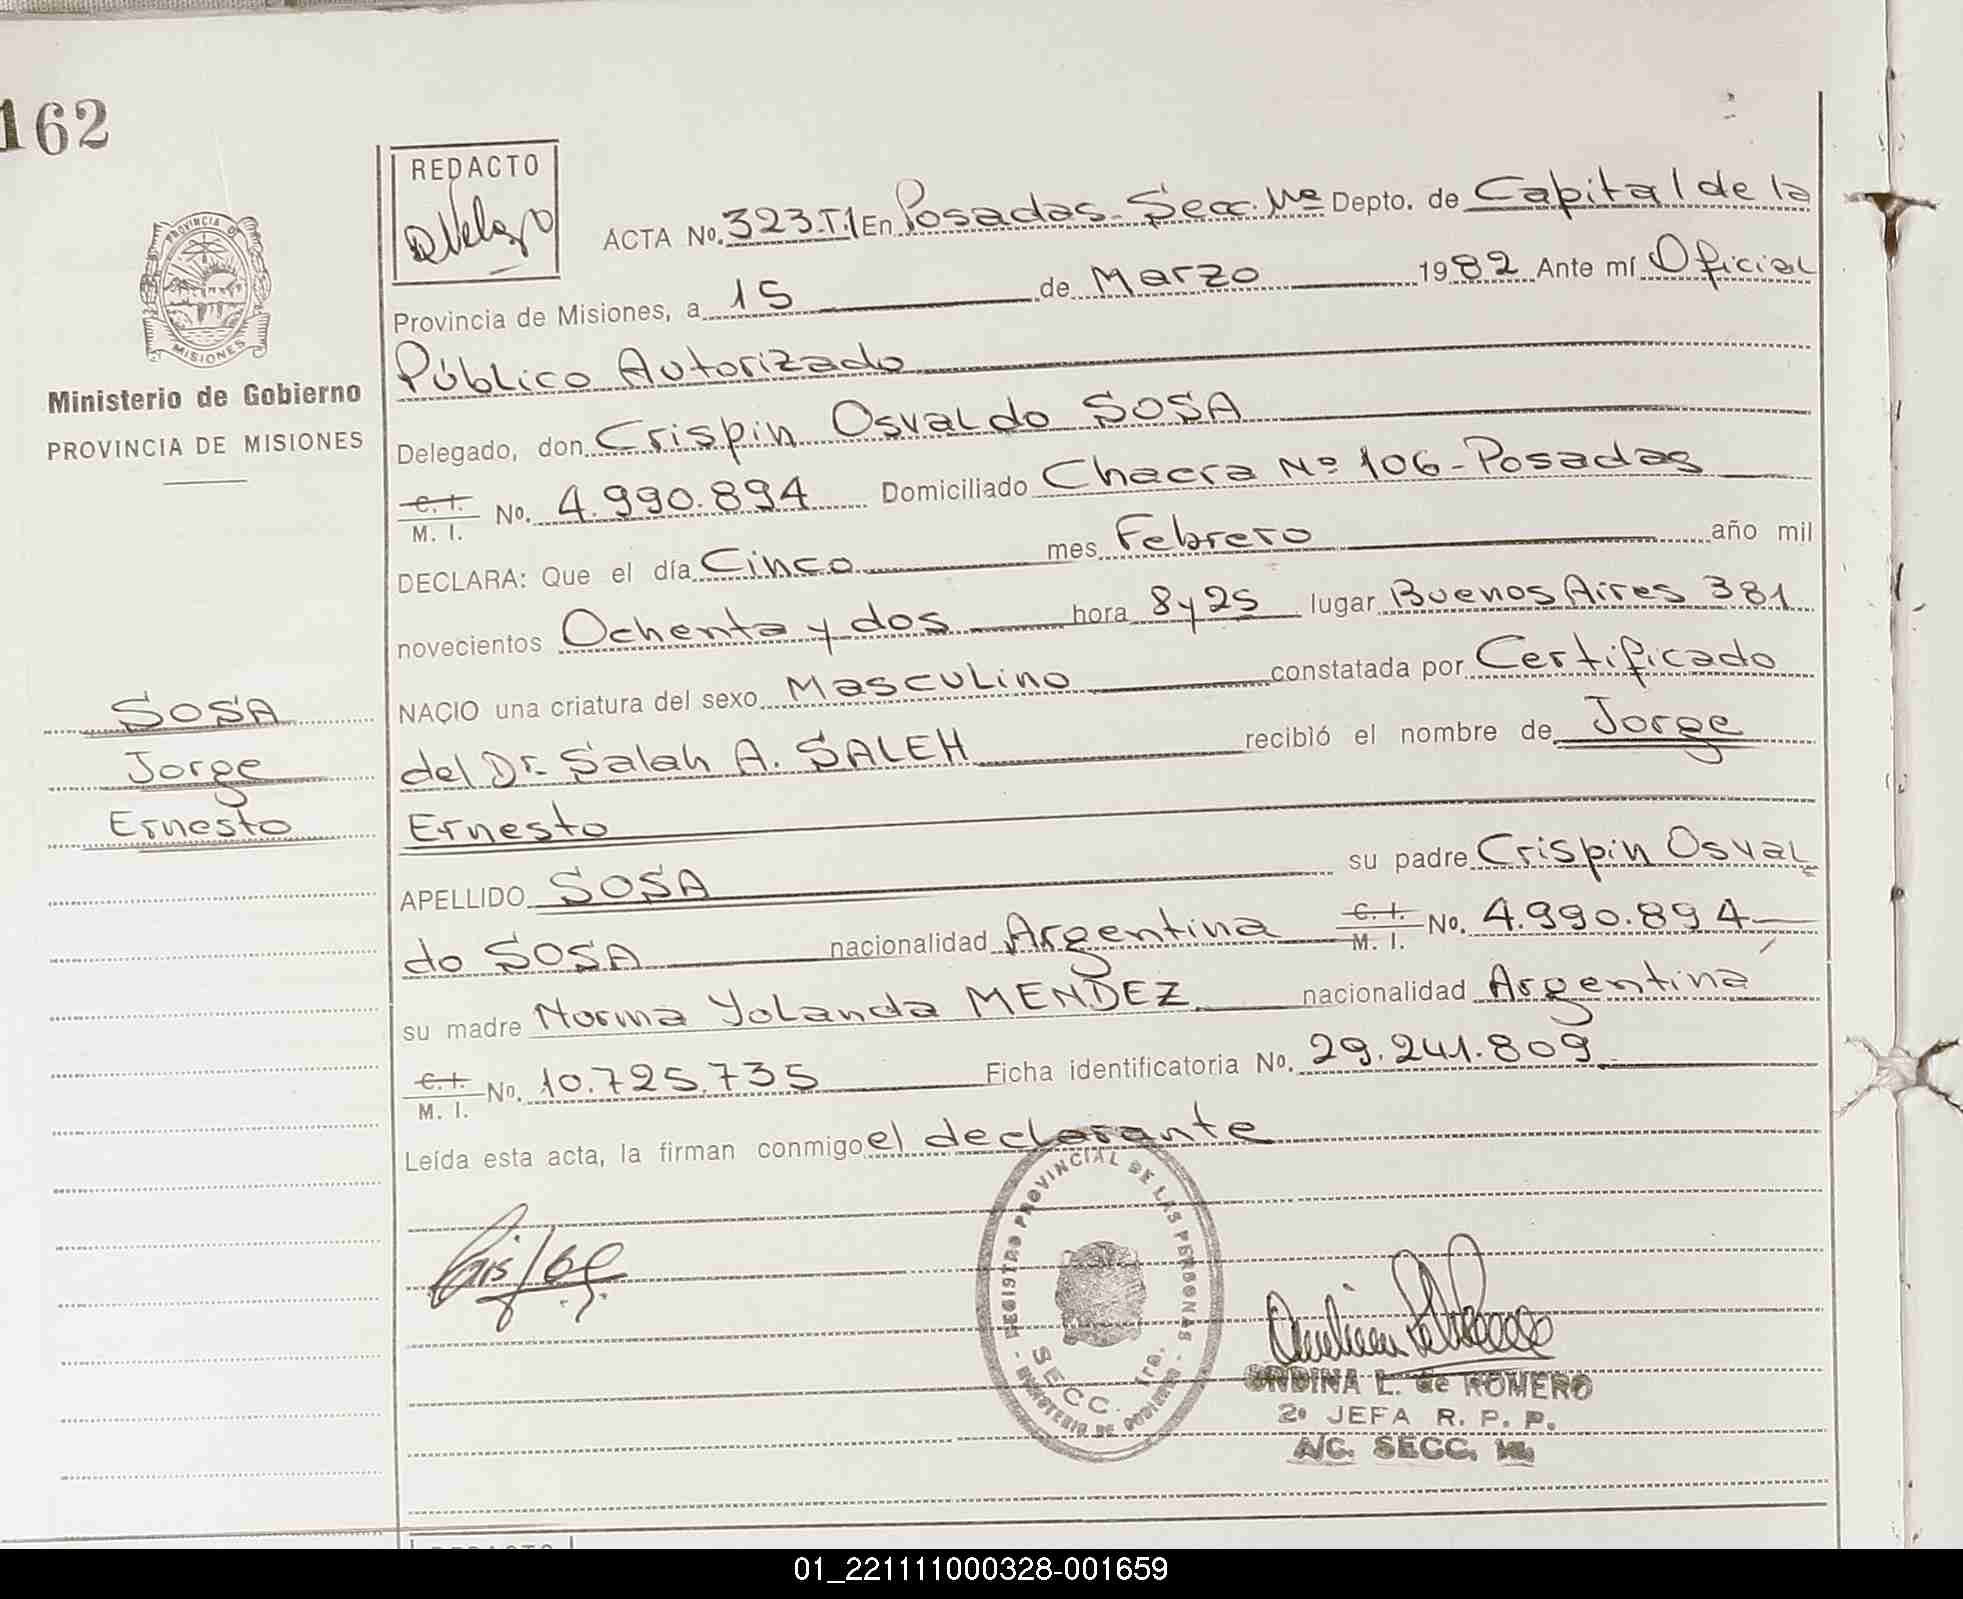 162
REDACTO
ACTA No. 323.T.1 En Posadas. Secc. Depto. de Capital de la
Provincia de Misiones, a 15 de Marzo 1982 Ante mí Oficial
Público Autorizado
Delegado, don Crispin Osvaldo SOSA
C. I.
M. I. No. 4.990.894 Domiciliado Chacra Nº 106 - Posadas
DECLARA: Que el día Cinco mes Febrero año mil
novecientos Ochenta y dos hora 8 y 25 lugar Buenos Aires 381
NACIO una criatura del sexo Masculino constatada por Certificado
del Dr. Salah A. SALEH recibió el nombre de Jorge
Ernesto
APELLIDO SOSA su padre Crispin Osval
do SOSA nacionalidad Argentina C. I. M. I. No. 4.990.894
su madre Norma Yolanda MENDEZ nacionalidad Argentina
C. I.
M. I. No. 10.725.735 Ficha identificatoria No. 29.241.809
Leída esta acta, la firman conmigo el declarante
PROVINCIA DE
MISIONES
Ministerio de Gobierno
PROVINCIA DE MISIONES
SOSA
Jorge
Ernesto
REGISTRO PROVINCIAL DE LAS PERSONAS
SECC. 1ra.
MINISTERIO DE GOBIERNO
ONDINA L. de ROMERO
2º JEFA R. P. P.
A/C. SECC.
01_221111000328-001659